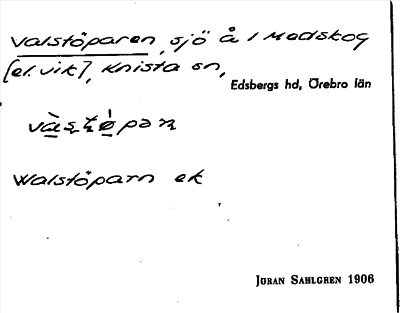 Valstöparen, sjö å / Medskog
[el. vik], Knista sn,
Edsbergs hd, Örebro län
Walstöparn ek
Jöran Sahlgren 1906